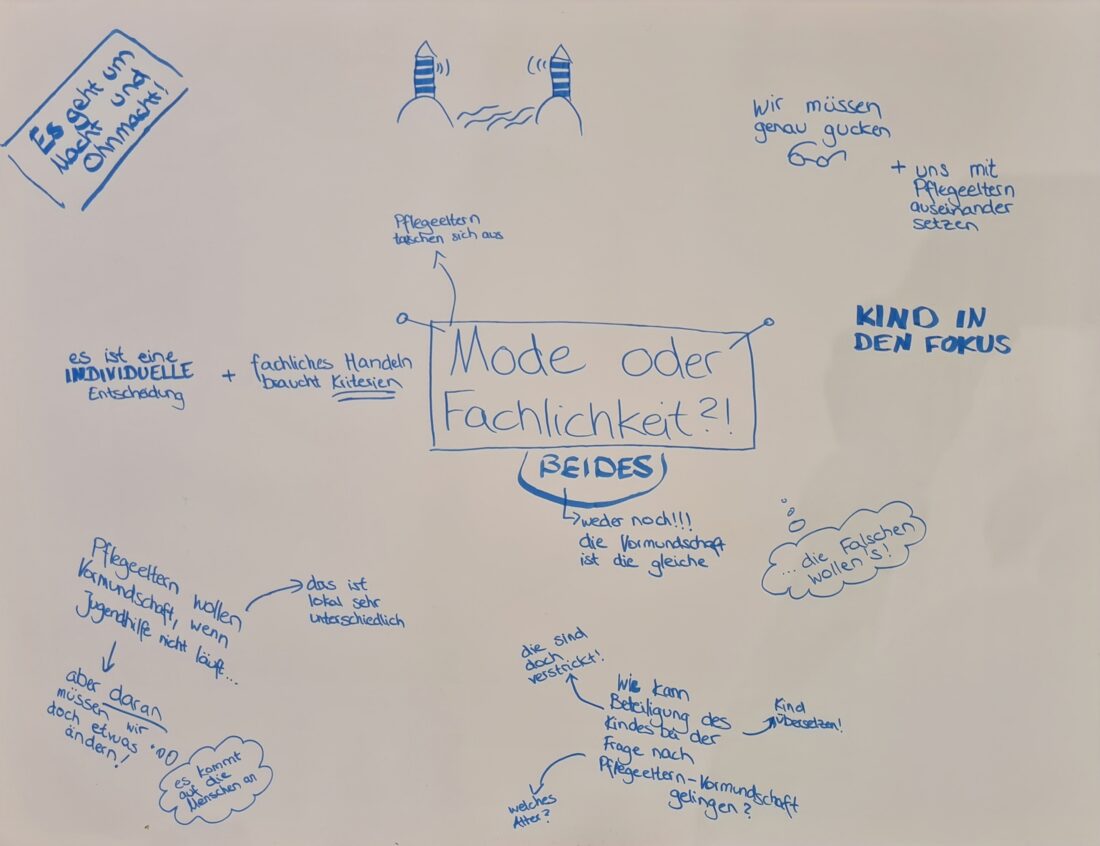 Es geht um
Macht und
Ohnmacht!
Wir müssen
genau gucken
+ uns mit
Pflegeeltern
auseinander
setzen
Pflegeeltern
tauschen sich aus
KIND IN
DEN FOKUS
es ist eine
INDIVIDUELLE
Entscheidung
+ fachliches Handeln
braucht Kriterien
Mode oder
Fachlichkeit?!
BEIDES
weder noch!!!
die Vormundschaft
ist die gleiche
... die Falschen
wollen's!
Pflegeeltern wollen
Vormundschaft, wenn
Jugendhilfe nicht läuft...
das ist
lokal sehr
unterschiedlich
aber daran
müssen wir
doch etwas
ändern!
es kommt
auf die
Menschen an
die sind
doch
verstrickt!
Wie kann
Beteiligung des
Kindes bei der
Frage nach
Pflegeeltern-Vormundschaft
gelingen?
Kind
übersetzen!
welches
Alter?